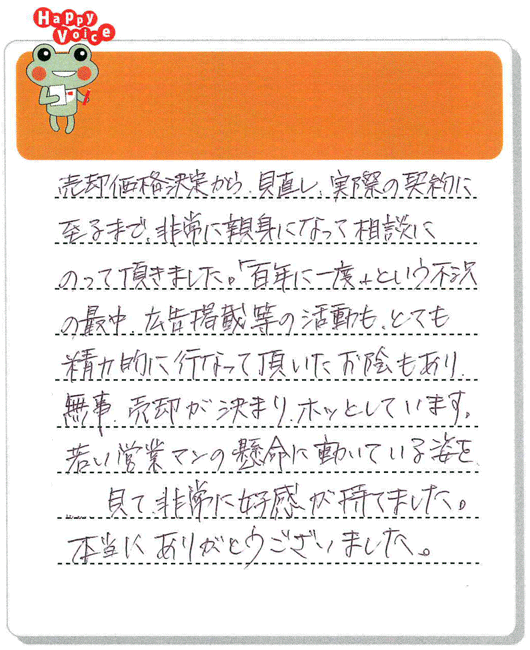 Happy
Voice
売却価格決定から、見直し、実際の契約に
至るまで、非常に親身になって相談に
のって頂きました。「百年に一度」という不況
の最中、広告掲載等の活動も、とても
精力的に行なって頂いたお陰もあり、
無事、売却が決まり、ホッとしています。
若い営業マンの懸命に動いている姿を
見て、非常に好感が持てました。
本当にありがとうございました。